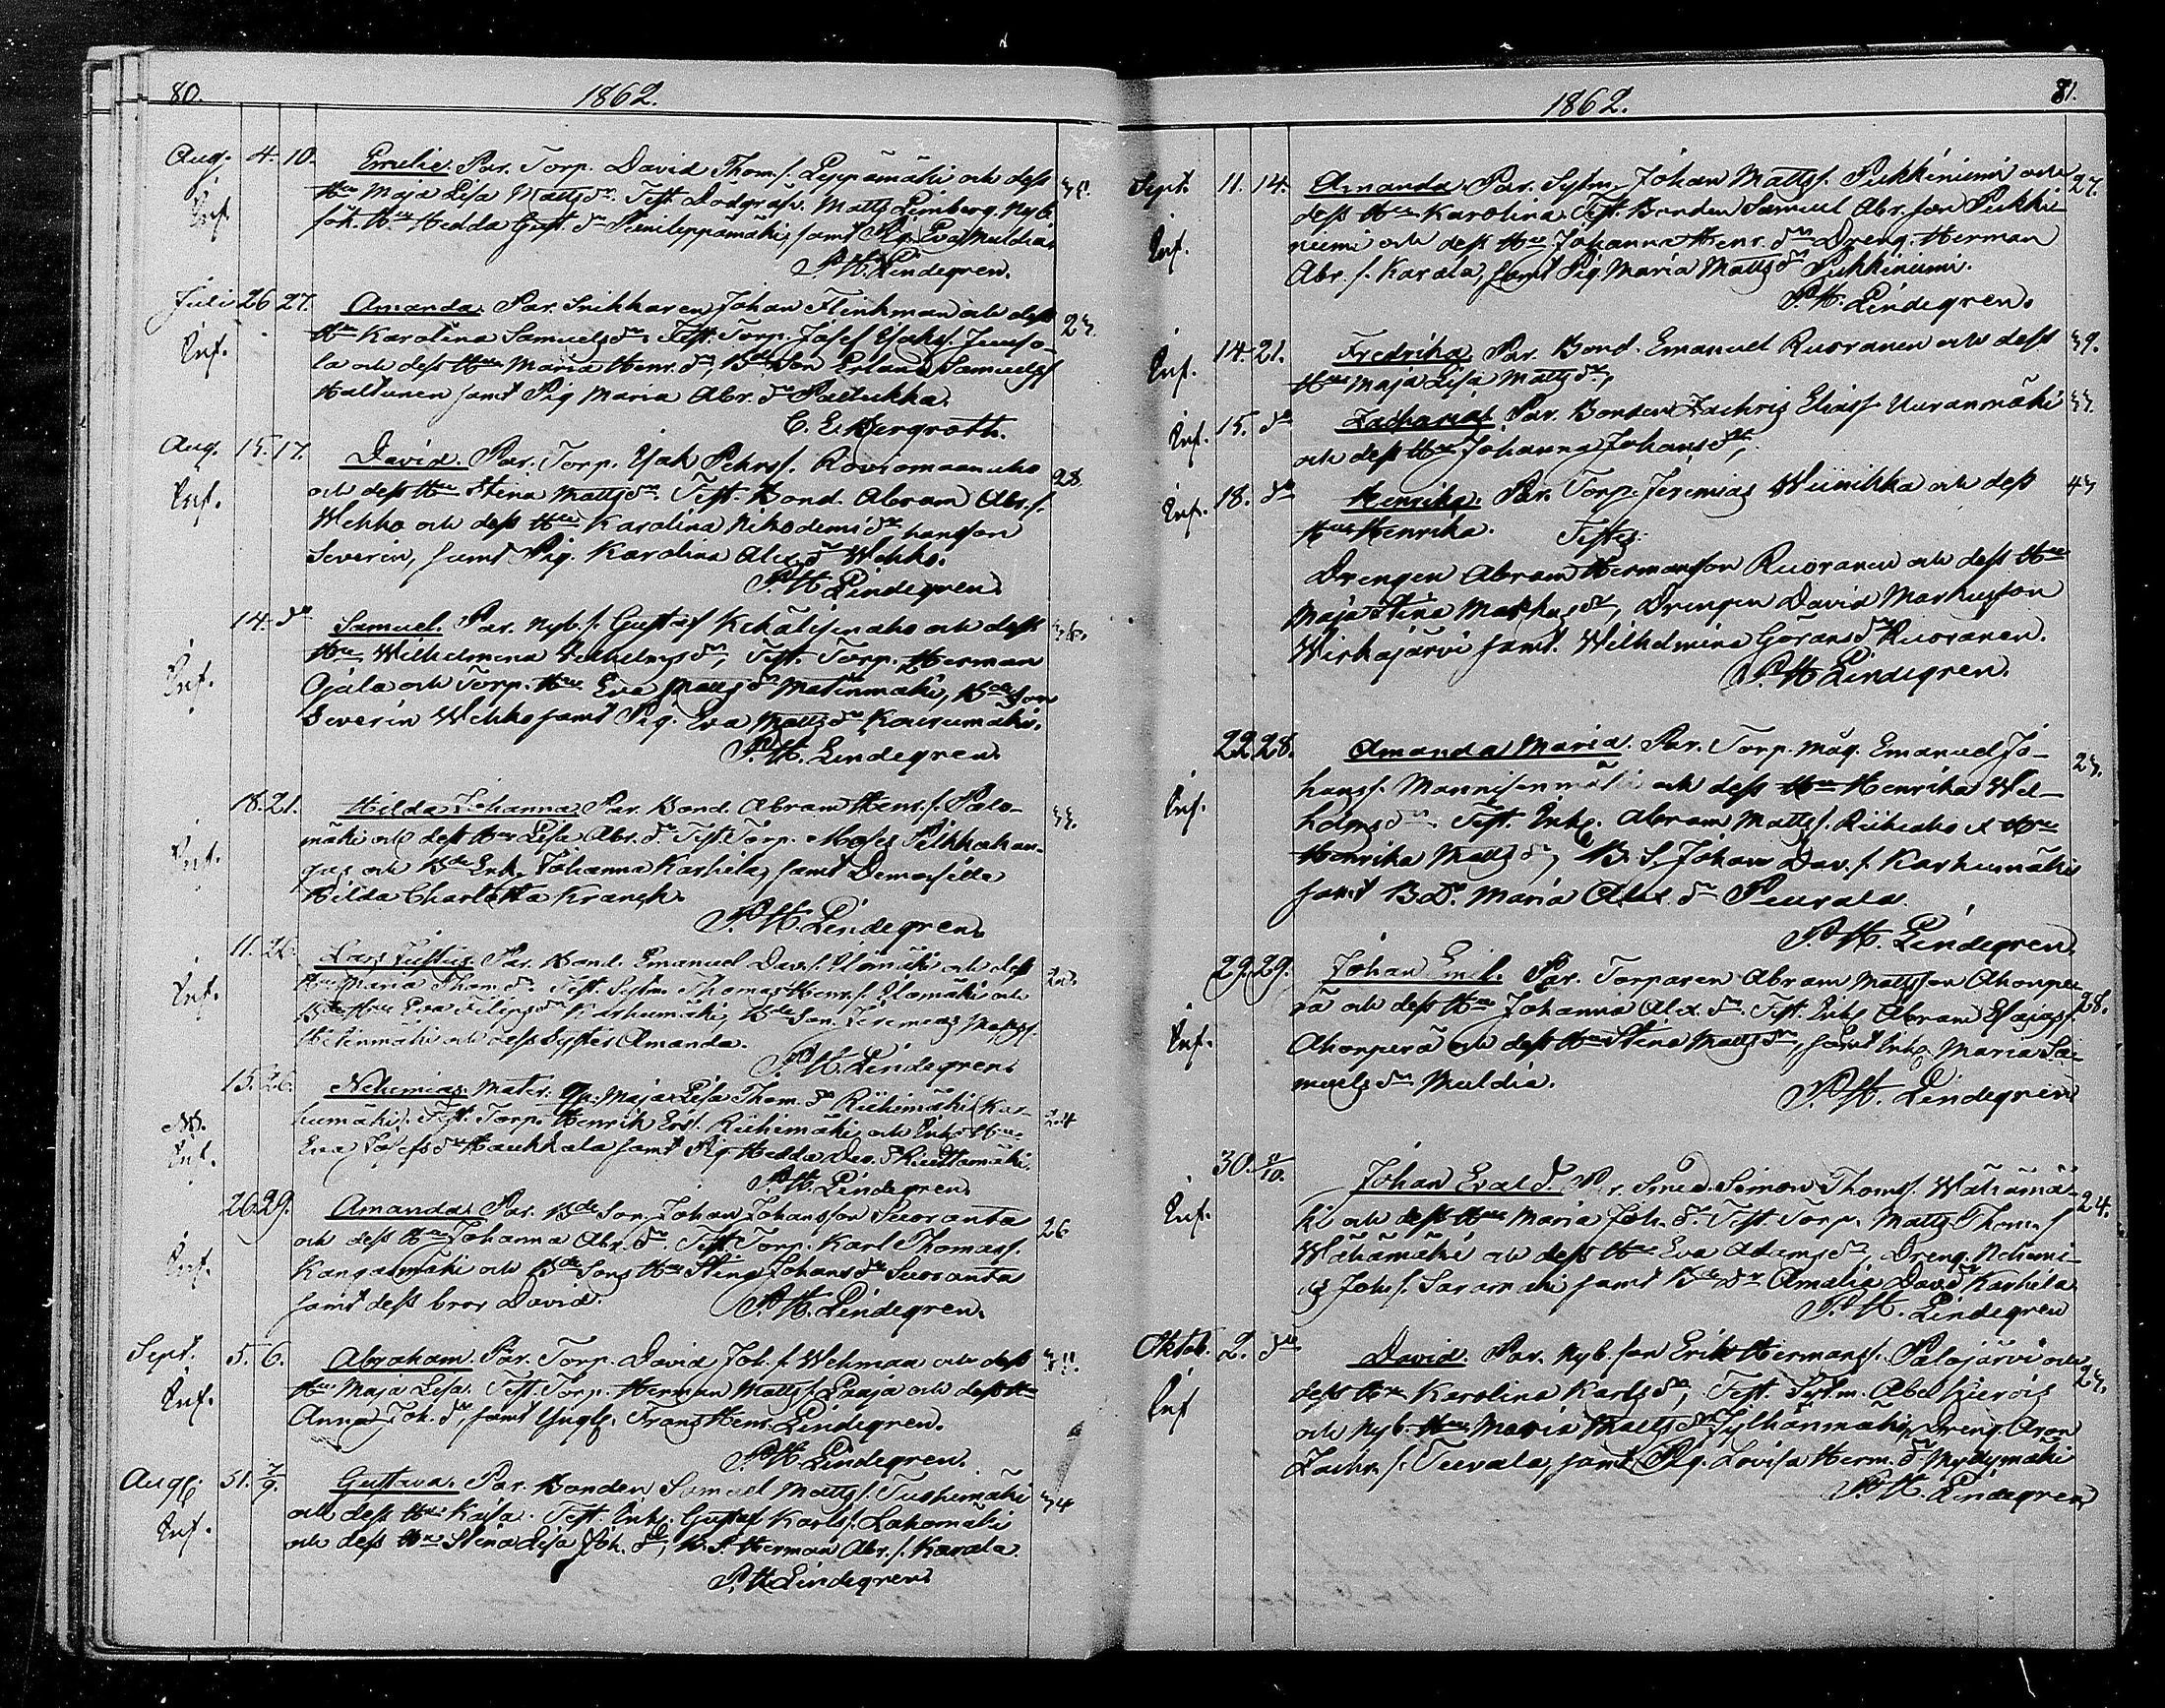 80. 1862.
Aug. 4. 10. Emelie. Par. Torp. David Thom. s. Leppämäki och dess
Inf. Hu Maja Lisa Matts dr. Test. Dödgräfv. Matts Limberg, Nyb.
söh. Hu Hedda Gust. dr samt Pig. Eva Muldia.
P. H. Lindegren.
Juli 26 27. Amanda. Par. Snikkaren Johan Flinkman och dess 23.
Inf. Hu Karolina Samuels dr, Test. Torp. Josef Esaks. Jouso-
la och dess Hu Maria Henr. dr, Bde Son Erland Samuels s
Haltunen samt Pig Maria Abr. dr Paltukka.
C. E. Bergroth.
Aug. 15. 17. David. Par. Torp. Esak Pehrs s. Roviomaanaho 28
Inf. och dess Hu Stina Matts dr. Test. Bond. Abram Abr. s.
Wehko och dess Hu Karolina Nikodemi dr hans son
Severin, samt Pig. Karolina Alex. dr Wehko.
P. H. Lindegren.
14. do Samuel. Par. Nyb. s. Gustaf Kekälisenaho och dess
Inf. Hu Wilhelmina Wilhelms dr, Test. Torp. Herman
Ojala och Torp. Hu Eva Matts dr Matinmäki, Bde Son
Severin Wehko samt Pig. Eva Matts dr Kaurumäki.
P. H. Lindegren.
18. 21. Hilda Johanna. Par. Bond. Abram Henr. s. Palo- 33.
Inf. mäki och dess Hu Lisa Abr. dr. Test. Torp. Moses Pilkkakan-
gas och Bde Enk. Johanna Karhila, samt Demoiselle
Hilda Charlotta Kranck.
P. H. Lindegren.
11. 26. Lars Justus. Par. Bond. Emanuel Dav. s. Ulomäki och dess
Inf. Hu Maria Thom. dr. Test. Sytn. Thomas Henr. s. Ulomäki och
Bde Hu Eva Filips dr Karhumäki, Bde Son. Jeremias
Hitinmäki och dess Syster Amanda.
P. H. Lindegren.
15. 26. Nehemias. Mater. Maja Lisa Thom. dr Riihimäki (Kar- 24
No. humäki). Test. Torp. Henrik Erss. Riihimäki och Enk. Hu
Inf. Eva Josefs dr Haukkala samt Pig. Hedda Dav. dr
P. H. Lindegren.
26. 29. Amanda. Par. Bde Son. Johan Johansson Suoranta 26
och dess Hu Johanna Abr. dr. Test. Torp. Karl Thomas s.
Inf. Kangasmäki och Bde Sons Hu Stina Johans dr Suoranta
samt dess bror David. P. H. Lindegren.
Sept. 5. 6. Abraham. Par. Torp. David Joh. s. Wehmaa och dess
Inf. Hu Maja Lisa. Test. Torp. Herman Matts s. Paaja och dess Hu
Anna Joh. dr, samt Yngl. Frans Henr. Lindegren.
P. H. Lindegren.
Aug. 31. 7/9. Gustava. Par. Bonden Samuel Matts s. Tuohimäki 34
Inf. och dess Hu Kaisa. Test. Inh. Gustaf Karls s. Lahomäki
och dess Hu Stina Lisa Joh. dr, B. S. Herman Abr. s. Karala.
P. H. Lindegren.
1862. 81.
Sept. 11. 14. Amanda. Par. Sytm. Johan Matts s. Pukkiniemi och 27.
Inf. dess Hu Karolina. Test. Bonden Samuel Abr. son Pukki-
niemi och dess Hu Johanna Henr. dr Dreng. Herman
Abr. s. Karala, samt Pig. Maria Matts dr Pukkiniemi.
P. H. Lindegren.
Inf. 14. 21. Fredrika. Par. Bond. Emanuel Ruoranen och dess 39.
Hu Maja Lisa Matts dr,
Inf. 15. do Zacharias. Par. Bonden Zachris Elias s. Uuranmäki 33.
och dess Hu Johanna Johans dr,
Inf. 18. do Henrika. Par. Torp. Jeremias Wiinikka och dess 43
Hu Henrika. Testes:
Drengen Abram Hermansson Ruoranen och dess Hu
Maja Stina Markus dr, Drengen David Markusson
Wirkajärvi samt Wilhelmina Görans dr Ruoranen.
P. H. Lindegren.
22. 28. Amanda Maria. Par. Torp. måg. Emanuel Jo- 23.
Inf. hans s. Mannisenmäki och dess Hu Henrika Wil-
helms dr. Test. Inh. Abram Matts s. Riihiaho o Hu
Henrika Matts dr, B. S. Johan Dav. s. Karhumäki
samt B. D. Maria Alex. dr Peurala.
P. H. Lindegren.
29. 29. Johan Emil. Par. Torparen Abram Mattsson Ahonpe-
Inf. rä och dess Hu Johanna Alex. dr. Test. Inh. Abram Esaias s. 28.
Ahonperä och dess Hu Stina Matts dr, samt Inh. Maria Sa-
muels dr Muldia.
P. H. Lindegren
30. 5/10. Johan Evald. Par. Smed. Simon Thoms s. Wähämä- 24.
Inf. ki och dess Hu Maria Joh. dr. Test. Torp. Matts Thom. s
Wähämäki och dess Hu Eva Adams dr, Dreng. Nehemi-
as Joh. s. Saramäki samt Bde Dr Amalia Dav. dr Karhila
P. H. Lindegren
Oktob. 2. do David. Par. Nyb. son Erik Hermans s. Palojärvi och 23.
Inf dess Hu Karolina Karls dr, Test. Sytm. Abel
och Nyb. Hu Maria Matts dr Jylhänmäki, Dreng. Aron
Zachr. s. Teevala, samt Pig. Lovisa Herm. dr Myllymäki
P. H. Lindegren